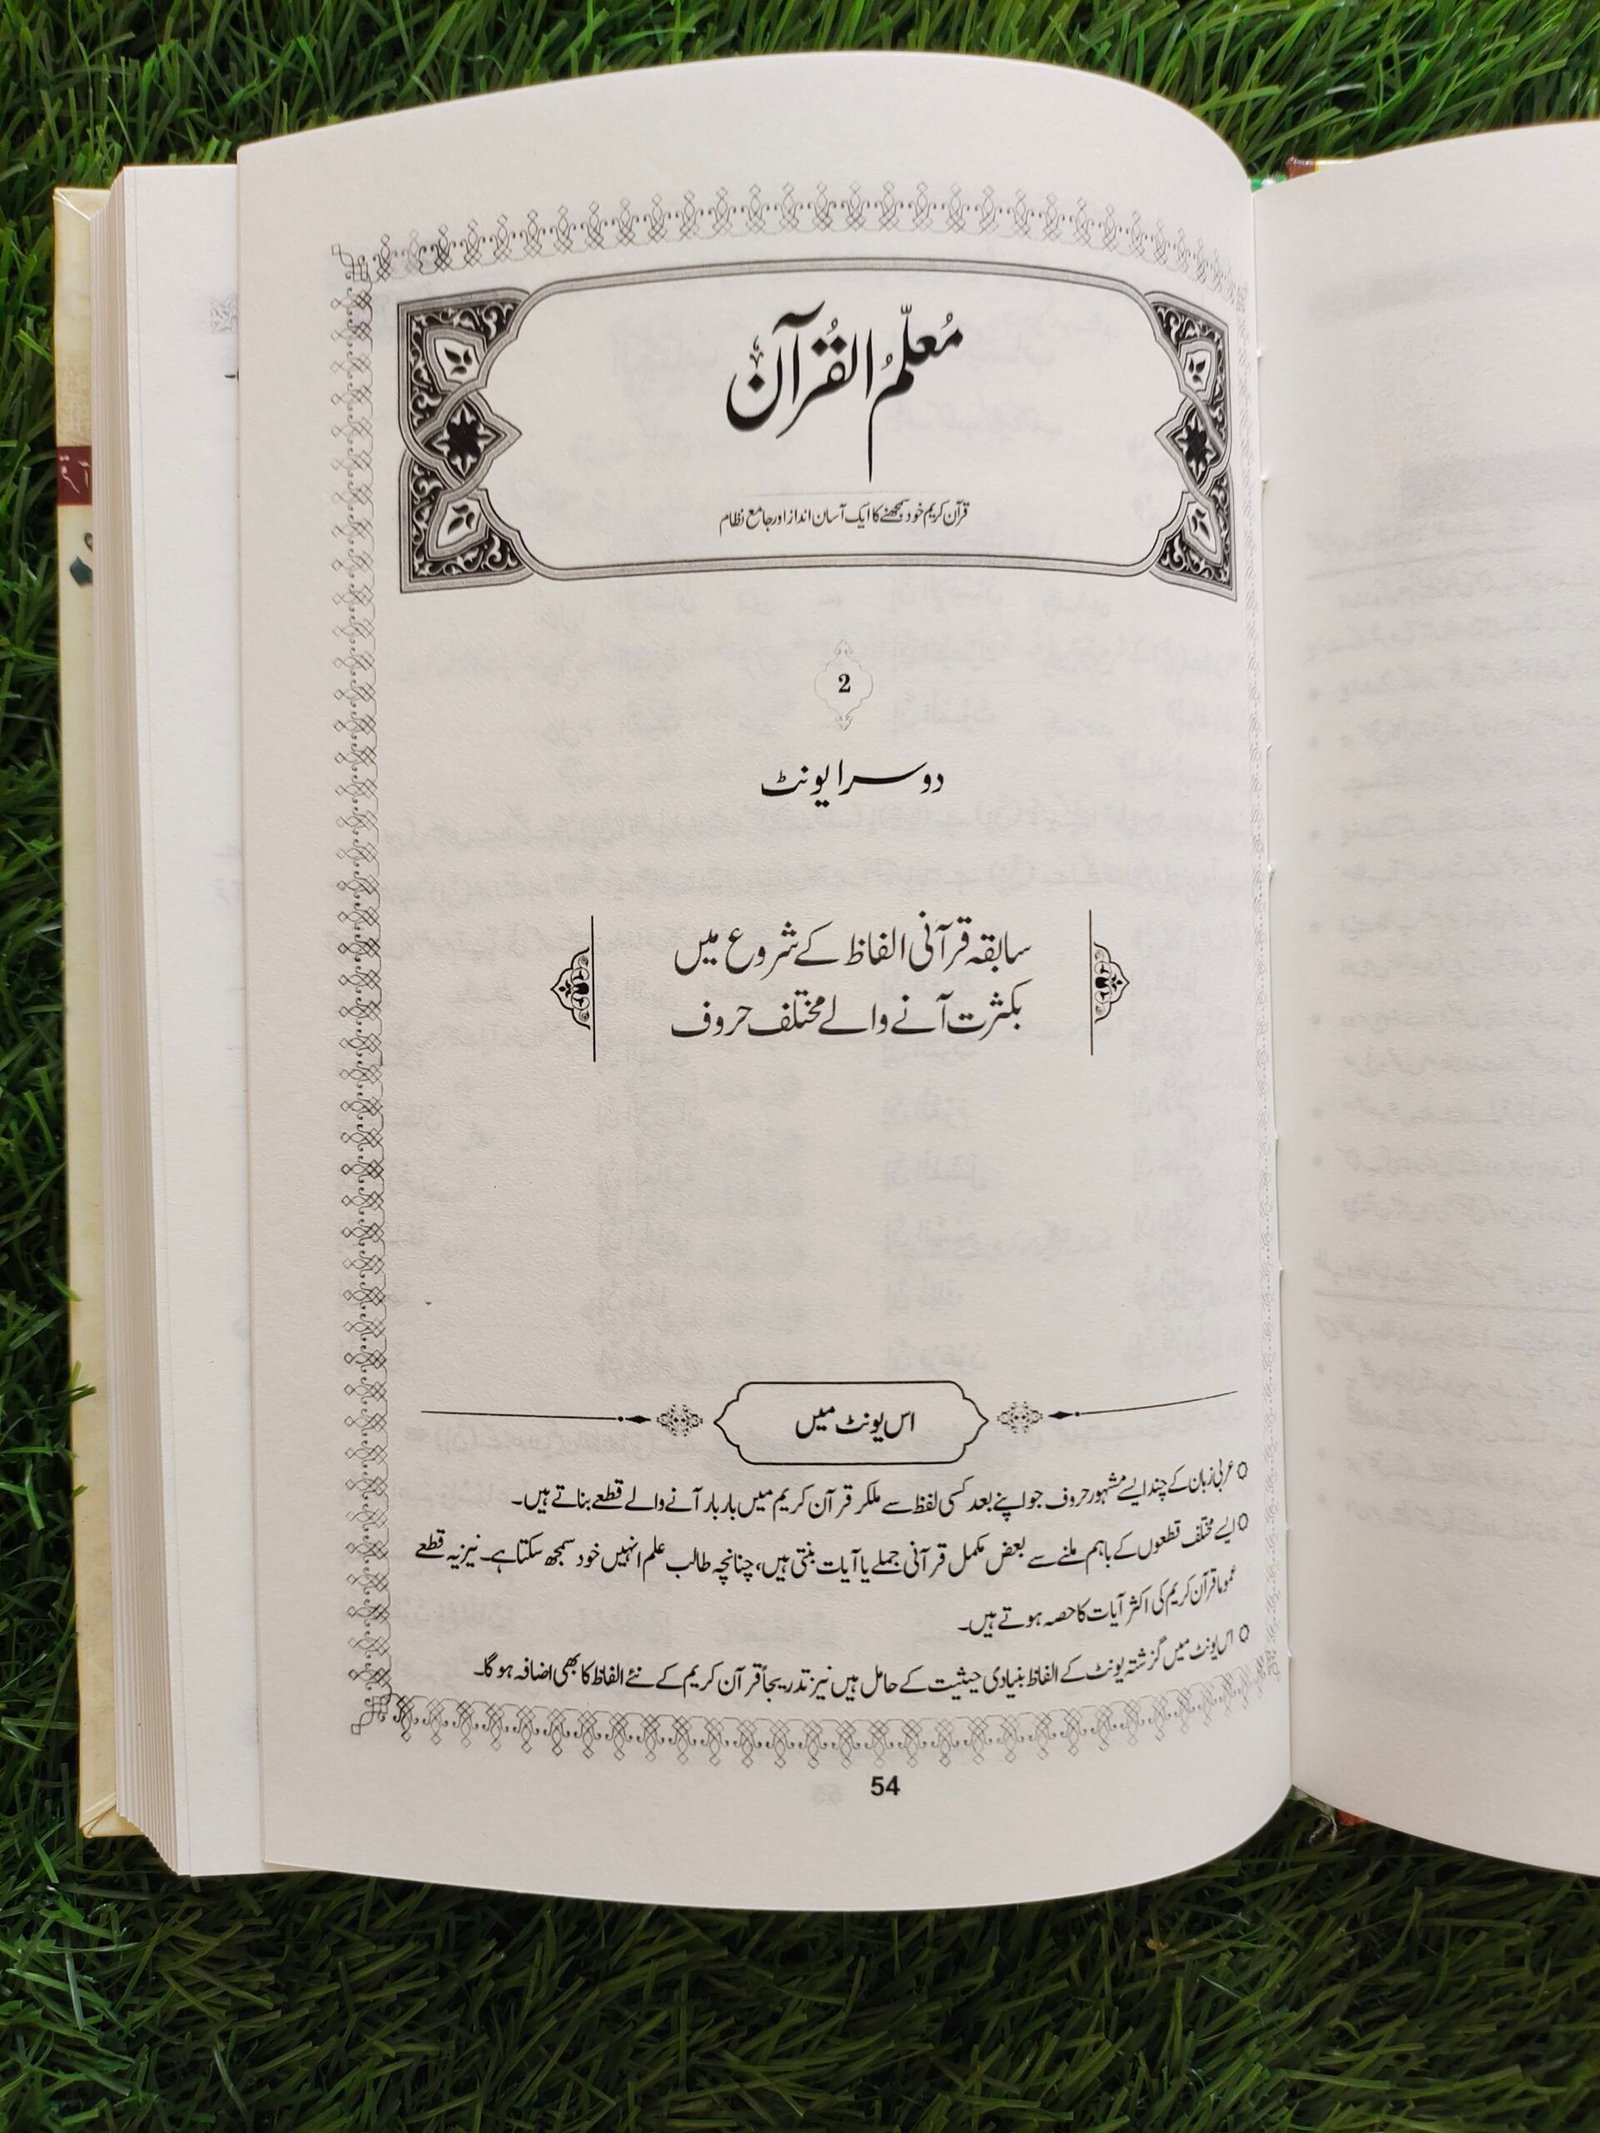 مُعلّمُ القُرآن
قرآن کریم خود سمجھنے کا ایک آسان انداز اور جامع نظام
2
دوسرا یونٹ
سابقہ قرآنی الفاظ کے شروع میں
بکثرت آنے والے مختلف حروف
اس یونٹ میں
عربی زبان کے چند ایسے مشہور حروف جو اپنے بعد کسی لفظ سے ملکر قرآن کریم میں بار بار آنے والے قطعے بناتے ہیں۔
ایسے مختلف قطعوں کے باہم ملنے سے بعض مکمل قرآنی جملے یا آیات بنتی ہیں، چنانچہ طالب علم انہیں خود سمجھ سکتا ہے۔ نیز یہ قطعے
عموما قرآن کریم کی اکثر آیات کا حصہ ہوتے ہیں۔
اس یونٹ میں گزشتہ یونٹ کے الفاظ بنیادی حیثیت کے حامل ہیں نیز تدریجاً قرآن کریم کے نئے الفاظ کا بھی اضافہ ہوگا۔
54